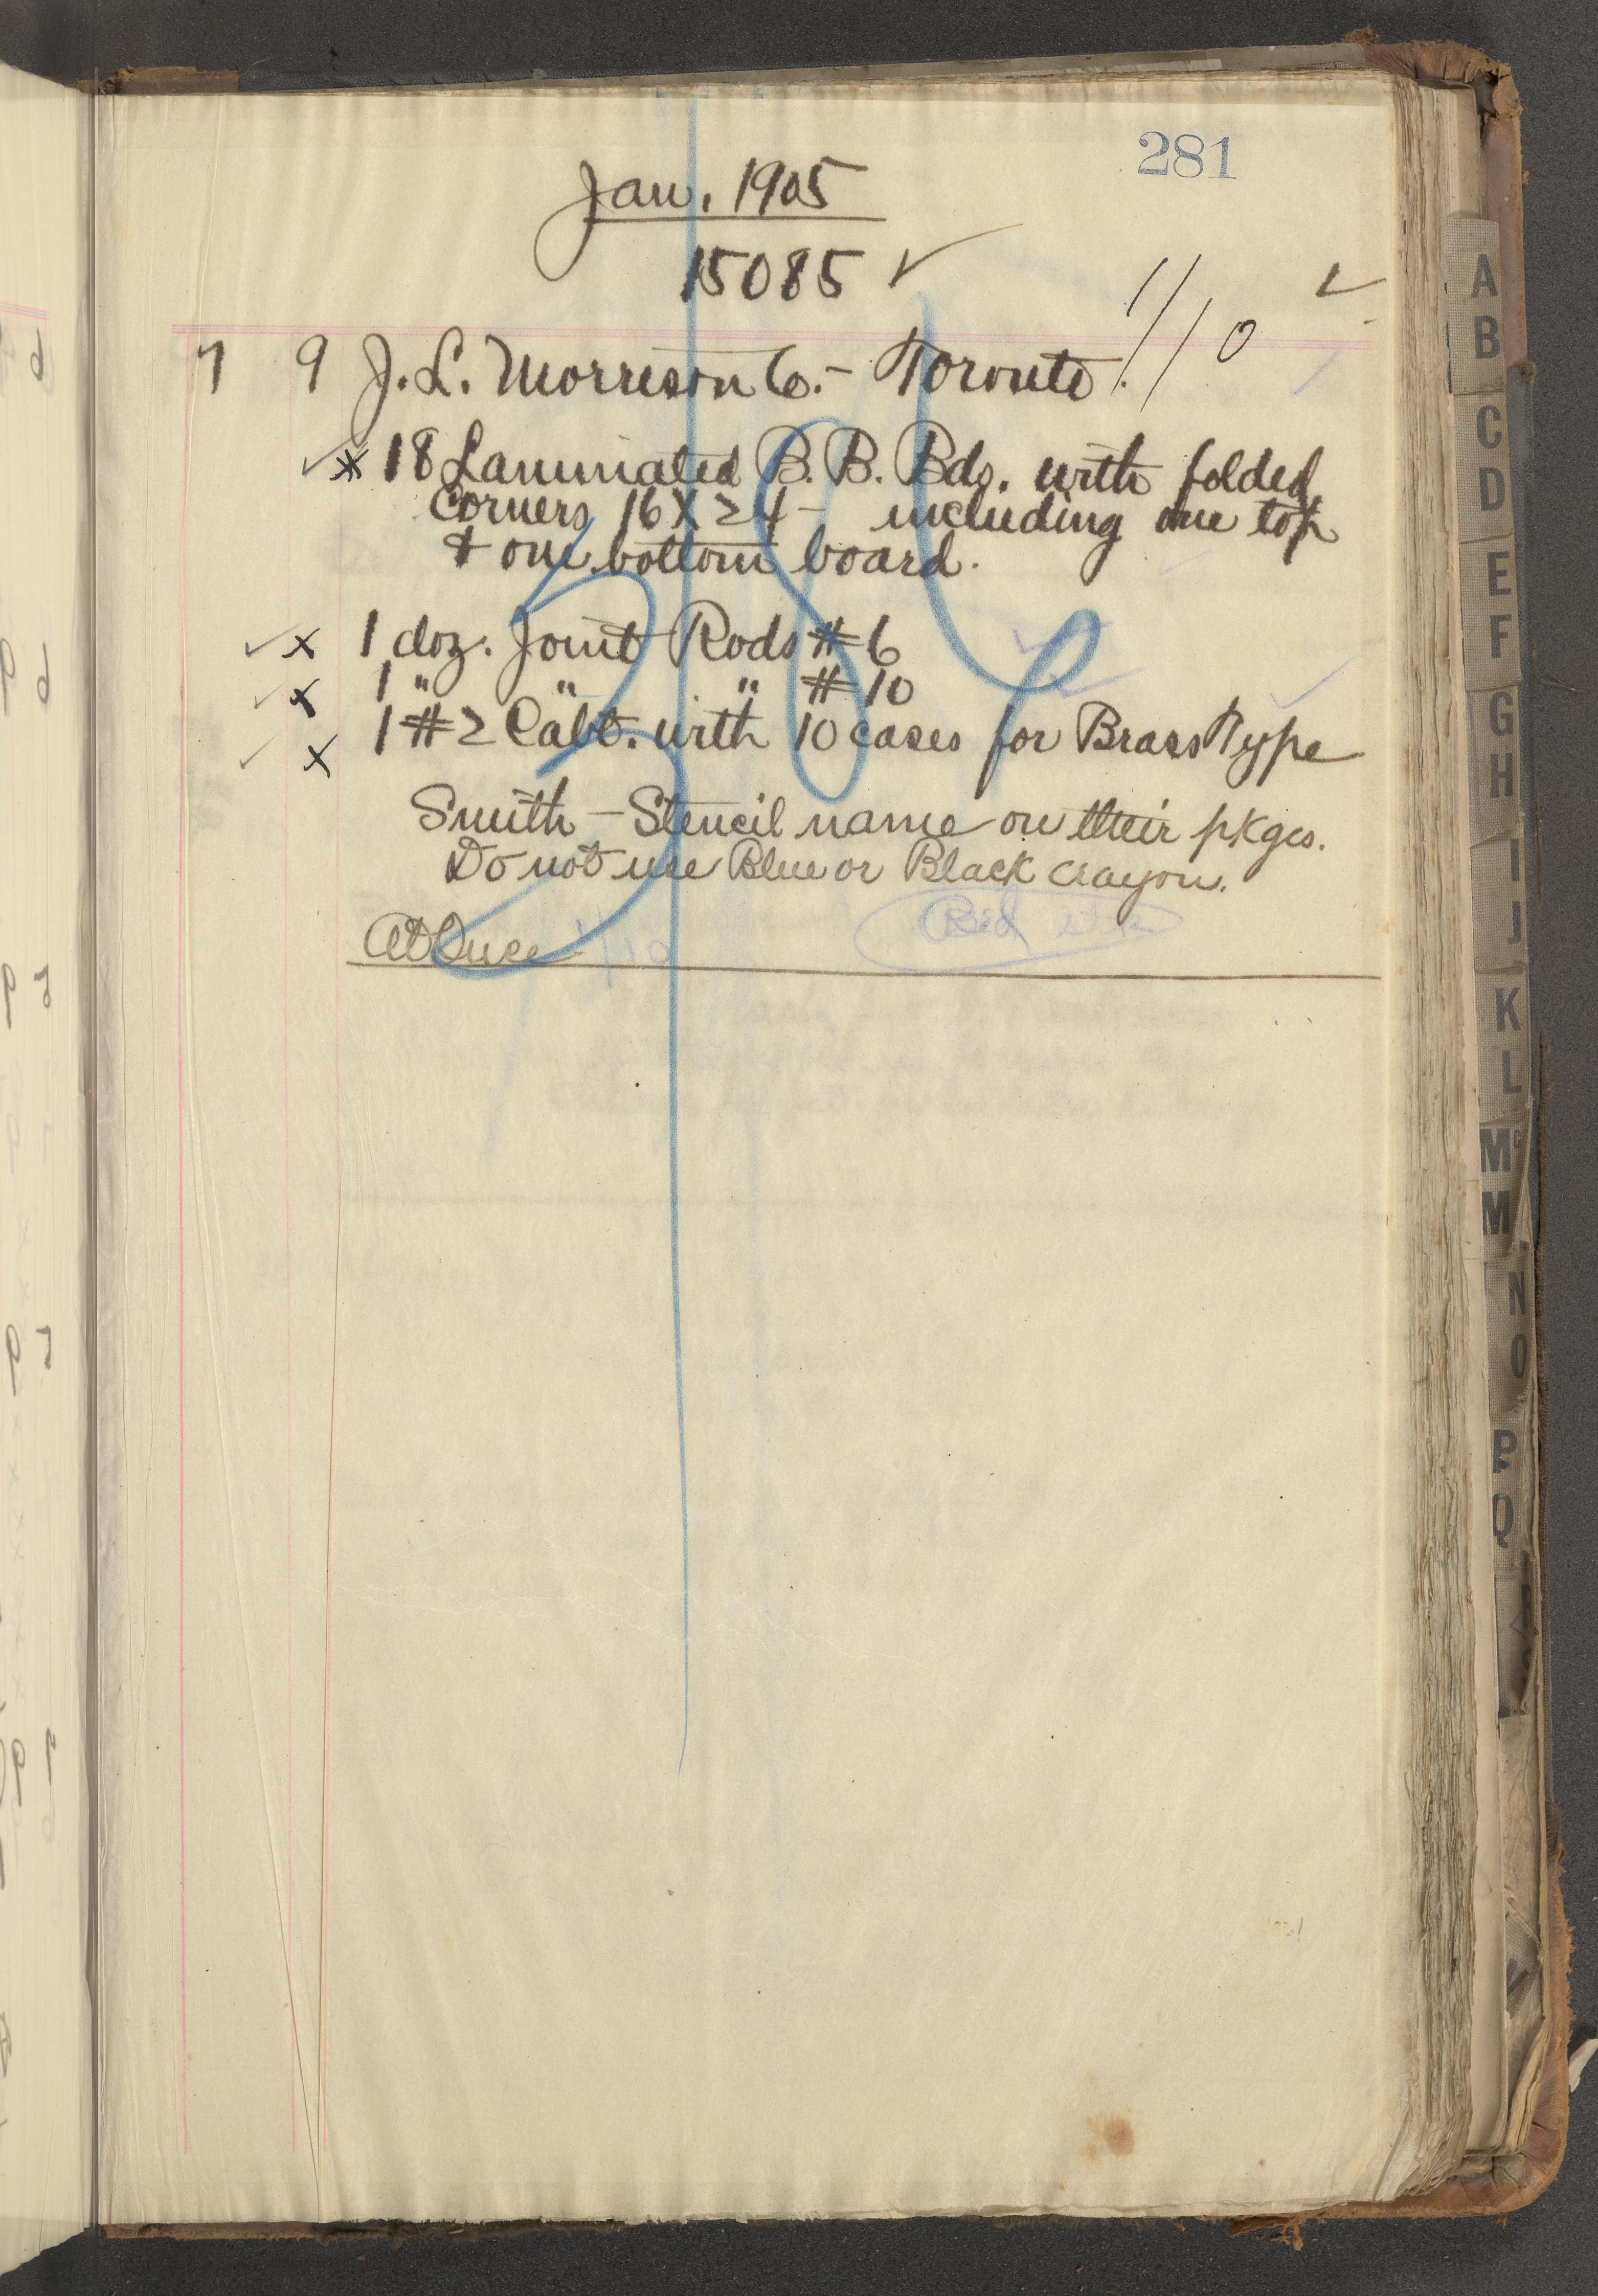 281
Jan. 1905
15085 ✓
1/10 ✓
7 9 J. L. Morrison Co. - Toronto.
18 Laminated B. B. Bds. with folded
corners 16 X 24 - including one top
& one bottom board.
1 doz. Joint Rods # 6
1 " " " # 10
1 # 2 Cabt. with 10 cases for Brass Type
Smith - Stencil name on their pkges.
Do not use Blue or Black crayon.
At Once 1/10
Red
A
B
C
D
E
F
G
H
I
J
K
L
Mc
M
N
O
P
Q